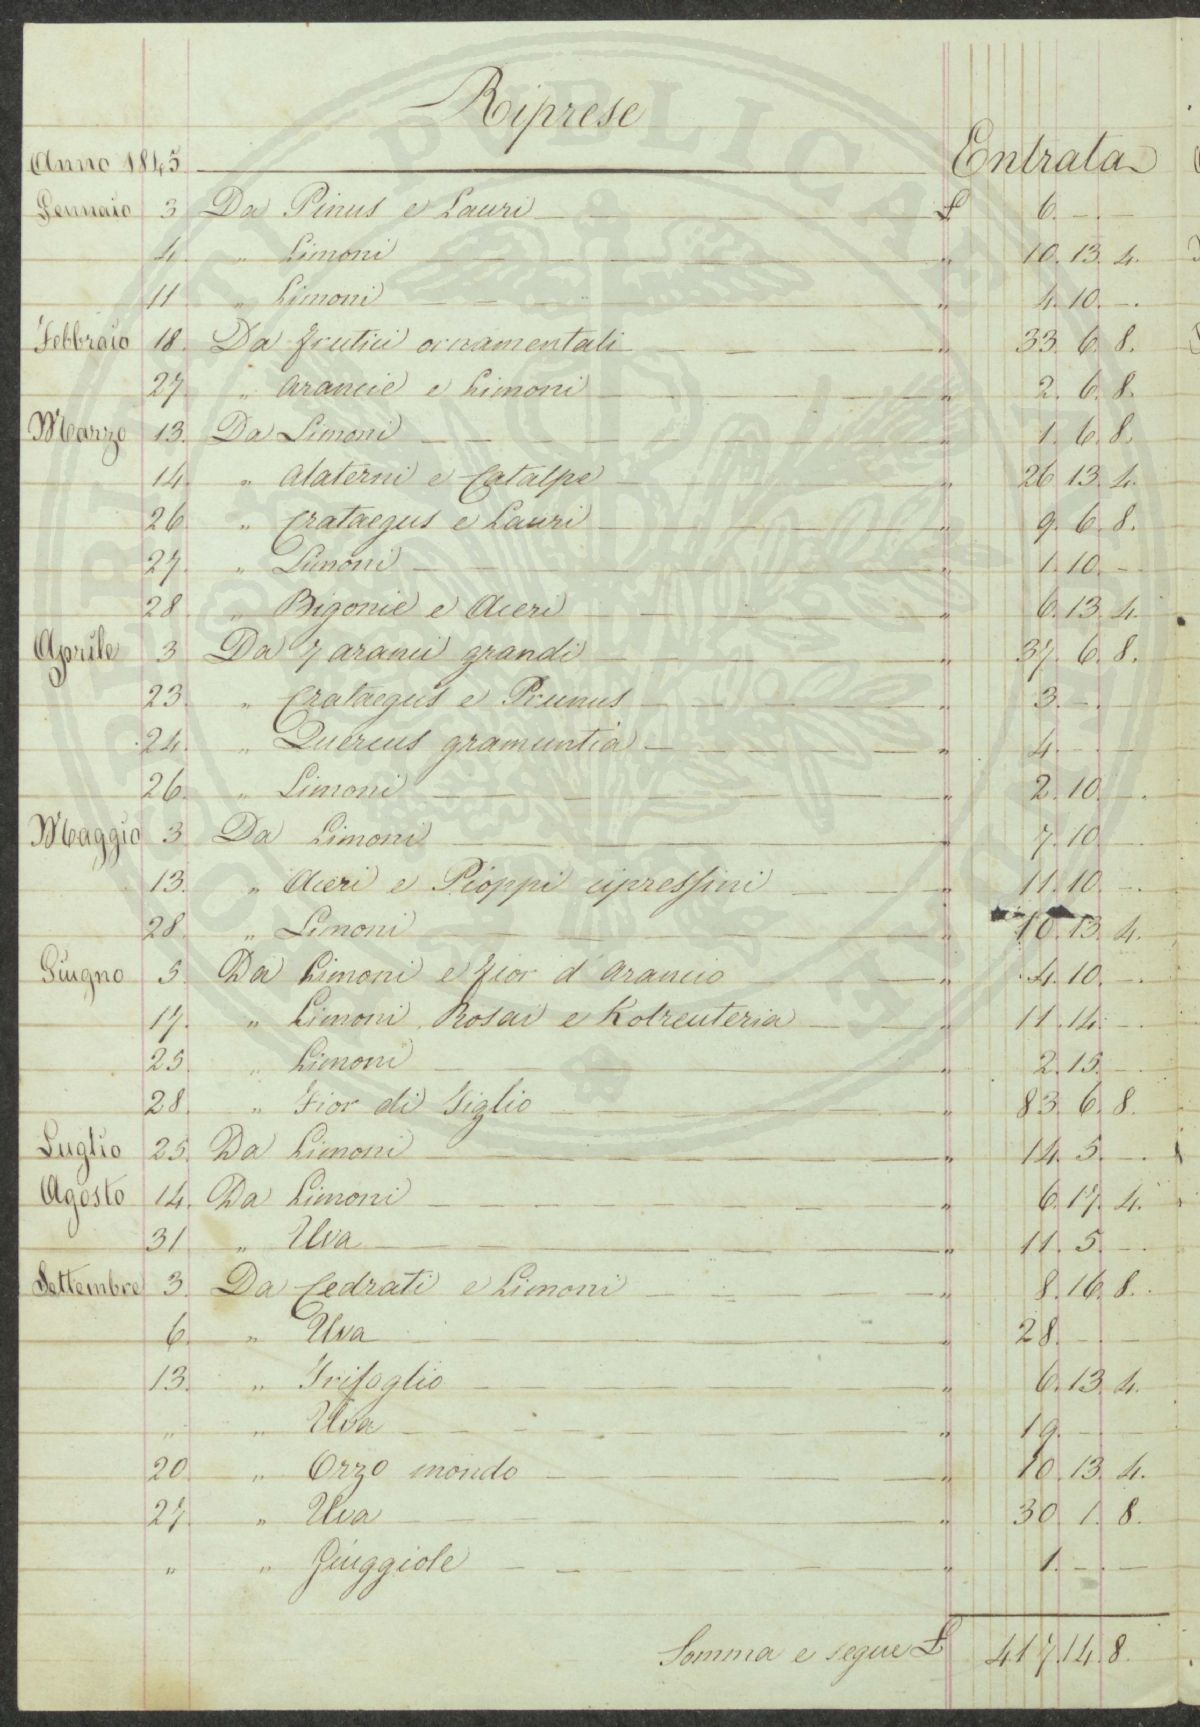 Riprese
Anno 1845 Entrata
Gennaio 3 Da Pinus e Lauri £ 6. - . -
4. " Limoni " 10. 13. 4.
11 " Limoni " 4. 10. - .
Febbraio 18. Da frutici ornamentali " 33. 6. 8.
27. " Arancie e Limoni " 2. 6. 8.
Marzo 13. Da Limoni " 1. 6. 8.
14. " Alaterni e Catalpe " 26. 13. 4.
26 " Crataegus e Lauri " 9. 6. 8.
27. " Limoni " 1. 10. -
28. " Bigonie e Aceri " 6. 13. 4.
Aprile 3 Da 7 aranci grandi " 37. 6. 8.
23. " Crataegus e Prunus " 3. - . -
24. " Quercus gramuntia " 4. - . -
26. " Limoni " 2. 10. - .
Maggio 3 Da Limoni " 7. 10. -
13. " Aceri e Pioppi cipressini " 11. 10. - .
28. " Limoni " 10. 13. 4.
Giugno 5. Da Limoni e fior d'arancio " 4. 10. - .
17. " Limoni, Rosai e Kolreuteria " 11. 14. -
25 " Limoni " 2. 15. -
28. " Fior di Tiglio " 83. 6. 8.
Luglio 25. Da Limoni " 14. 5. - .
Agosto 14. Da Limoni " 6. 17. 4.
31 " Uva " 11. 5. - .
Settembre 3. Da Cedrati e Limoni " 8. 16. 8.
6. " Uva " 28. - . -
13. " Trifoglio " 6. 13. 4.
" " Uva " 19. - . -
20 " Orzo mondo " 10. 13. 4.
27. " Uva " 30. 1. 8.
" " Giuggiole " 1. - . -
Somma e segue £ 417. 14. 8.